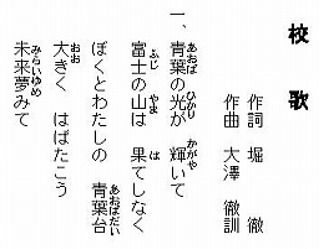 校歌
作詞 堀 徹
作曲 大澤 徹訓
一、青葉の光が 輝いて
富士の山は 果てしなく
ぼくとわたしの 青葉台
大きく はばたこう
未来夢みて